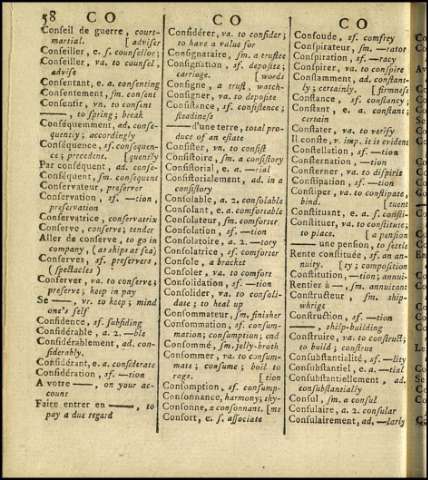 58 C O
C O
C O
Conseil de guerre, court-
martial. [adviser
Conseiller, e. ſ. counsellor;
Conseiller, va. to counsel,
advise
Consentant, e a. consenting
Consentement, ſm. consent
Consentir, vn. to consent
——, to spring; break
Conséquemment, ad. conse-
quently; accordingly
Conséquence, ſf. consequen-
ce; precedent. [quently
Par conséquent, ad. conse-
Conséquent, ſm. consequent
Conservateur, preserver
Conservation, ſf. —tion,
preservation
Conservatrice, conservatrix
Conserve, conserve; tender
Aller de conserve, to go in
company, (as ships at sea)
Conserves, ſf. preservers,
(spectacles)
Conserver, va. to conserve;
preserve; keep in pay
Se ——, vr. to keep; mind
one's self
Considence, ſf. subsiding
Considérable, a 2. —ble
Considérablement, ad. con-
siderably.
Considérant, e a. considerate
Considération, ſf. —tion
A votre ——, on your ac-
count
Faire entrer en ——, to
pay a due regard
Considérer, va. to consider;
to have a value for
Consignataire, ſm. a trustee
Consignation, ſf. deposite;
carriage. [words
Consigne, a trust, watch-
Consigner, va. to deposite
Consistance, ſf. consistence;
steadiness
——d'une terre, total pro-
duce of an estate
Consister, vn. to consist
Consistoire, ſm. a consistory
Consistorial, e a. —rial
Consistorialement, ad. in a
consistory
Consolable, a 2. consolable
Consolant, e a. comfortable
Consolateur, ſm. comforter
Consolation, ſf. —tion
Consolatoire, a 2. —tory
Consolatrice, ſf. comforter
Console, a bracket
Consoler, va. to comfort
Consolidation, ſf. —tion
Consolider, va. to consoli-
date; to heal up
Consommateur, ſm. finisher
Consommation, ſf. consum-
mation; consumption; end
Consommé, ſm. jelly-broth
Consommer, va. to consum-
mate; consume; boil to
rags. [tion
Consomption, ſf. consump-
Consonnance, harmony;
Consonne, a consonnant.
Consort, e ſ. associate
Consoude, ſf. comfrey
Conspirateur, ſm. —rator
Conspiration, ſf. —racy
Conspirer, va. to conspire
Constamment, ad. constant-
ly; certainly. [firmness
Constance, ſf. constancy;
Constant, e a. constant;
certain
Constater, va. to verify
Il conste, v. imp. it is evident
Constellation, ſf —tion
Consternation, —tion
Consterner, va. to dispirit
Constipation, ſf —tion
Constiper, va. to constipate,
bind. [tuent
Constituant, e a. ſ. consti-
Constituer, va. to constitute;
to place. [a pension
—— une pension, to settle
Rente constituée, ſf. an an-
nuity. [ty; composition
Constitution, —tion; annui-
Rentiers à ——, ſm. annuitant
Constructeur, ſm. ship-
wright
Construction, ſf —tion
——, ship-building
Construire, va. to construct;
to build; construe
Consubstantialité, ſf —lity
Consubstantiel, e a. —tial
Consubstantiellement, ad.
consubstantially
Consul, ſm. a consul
Consulaire, a 2. consular
Consulairement, ad. —larly